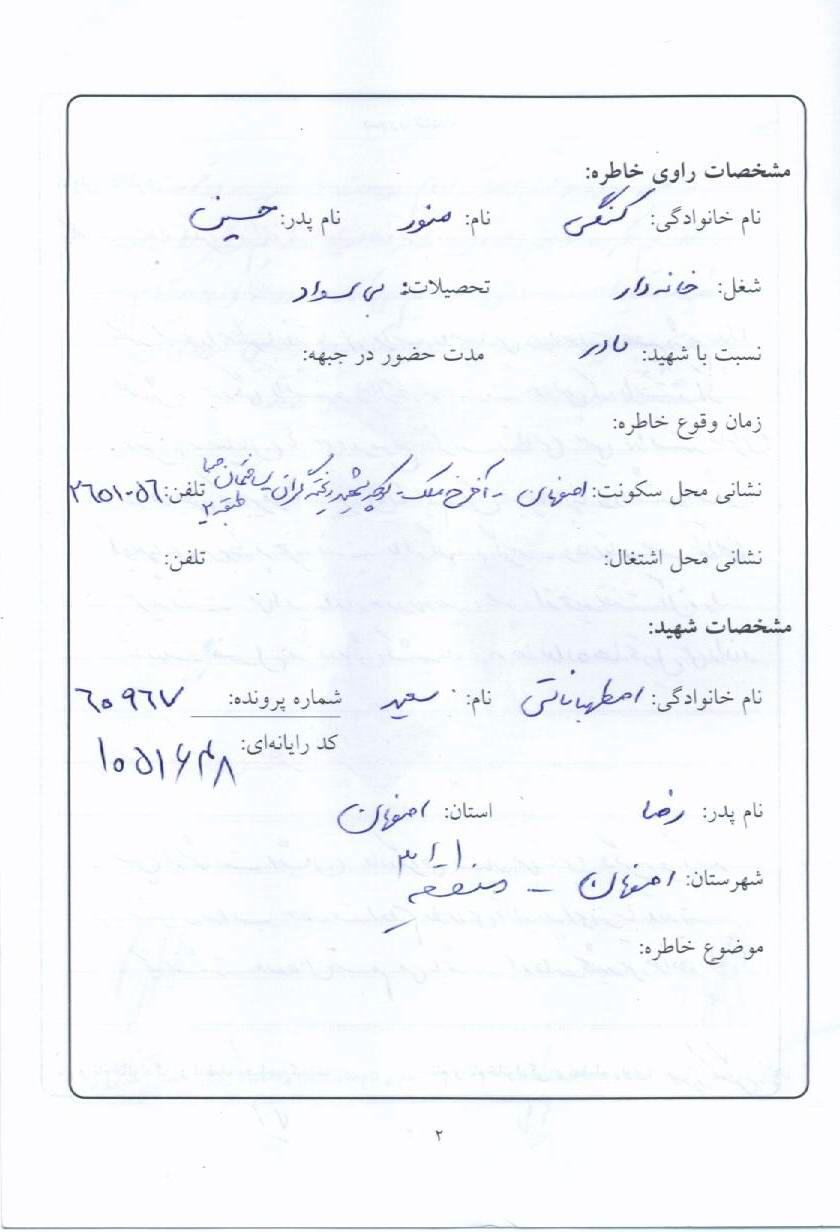 مشخصات راوی خاطره:
نام خانوادگی: کنگی نام: منور نام پدر: حسین
شغل: خانه دار تحصیلات: بی سواد
نسبت با شهید: مادر مدت حضور در جبهه:
زمان وقوع خاطره:
نشانی محل سکونت: اصفهان - آخر ملک - کوچه شهید ریخته گران - ساختمان طبقه ۲ تلفن: ۲۶۵۱۰۵۶
نشانی محل اشتغال: تلفن:
مشخصات شهید:
نام خانوادگی: اصطهباناتی نام: سعید شماره پرونده: ۶۰۹۶۷
کد رایانه‌ای: ۱۰۵۱۶۴۸
نام پدر: رضا استان: اصفهان
شهرستان: اصفهان - منطقه ۳
موضوع خاطره:
۲